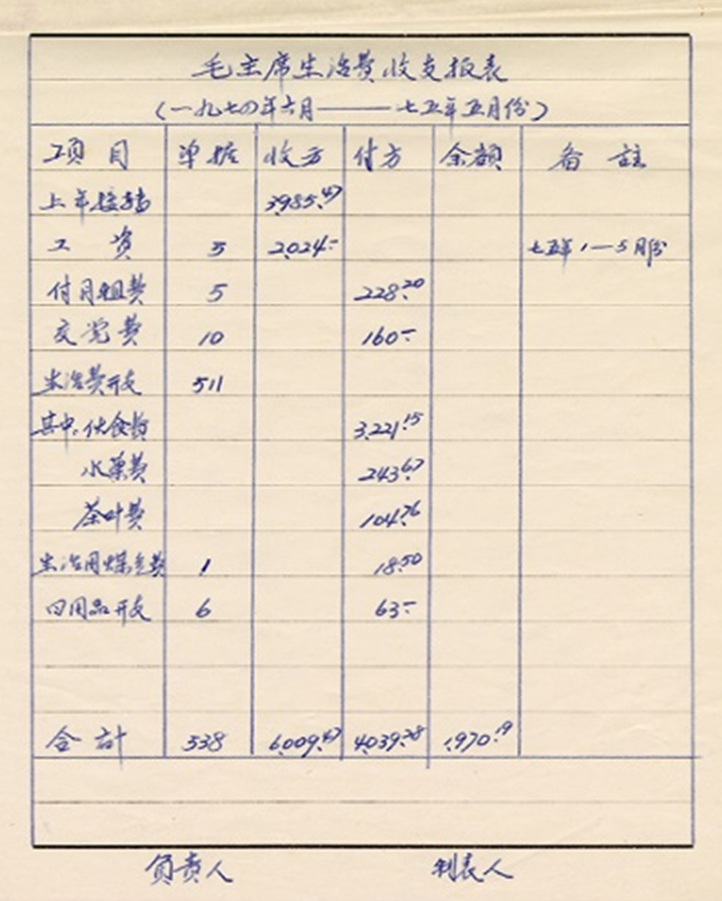 毛主席生活费收支报表
(一九七四年六月——七五年五月份)
项目 单据 收方 付方 余额 备註
上年接结 3985.47
工资 5 2,024.- 七五年1—5月份
付月租费 5 228.20
交党费 10 160.-
生活费开支 511
其中:伙食费 3,221.15
水菓费 243.67
茶叶费 104.76
生活用煤气费 1 18.50
日用品开支 6 63.-
合計 538 6,009.47 4,039.28 1,970.19
负责人 制表人